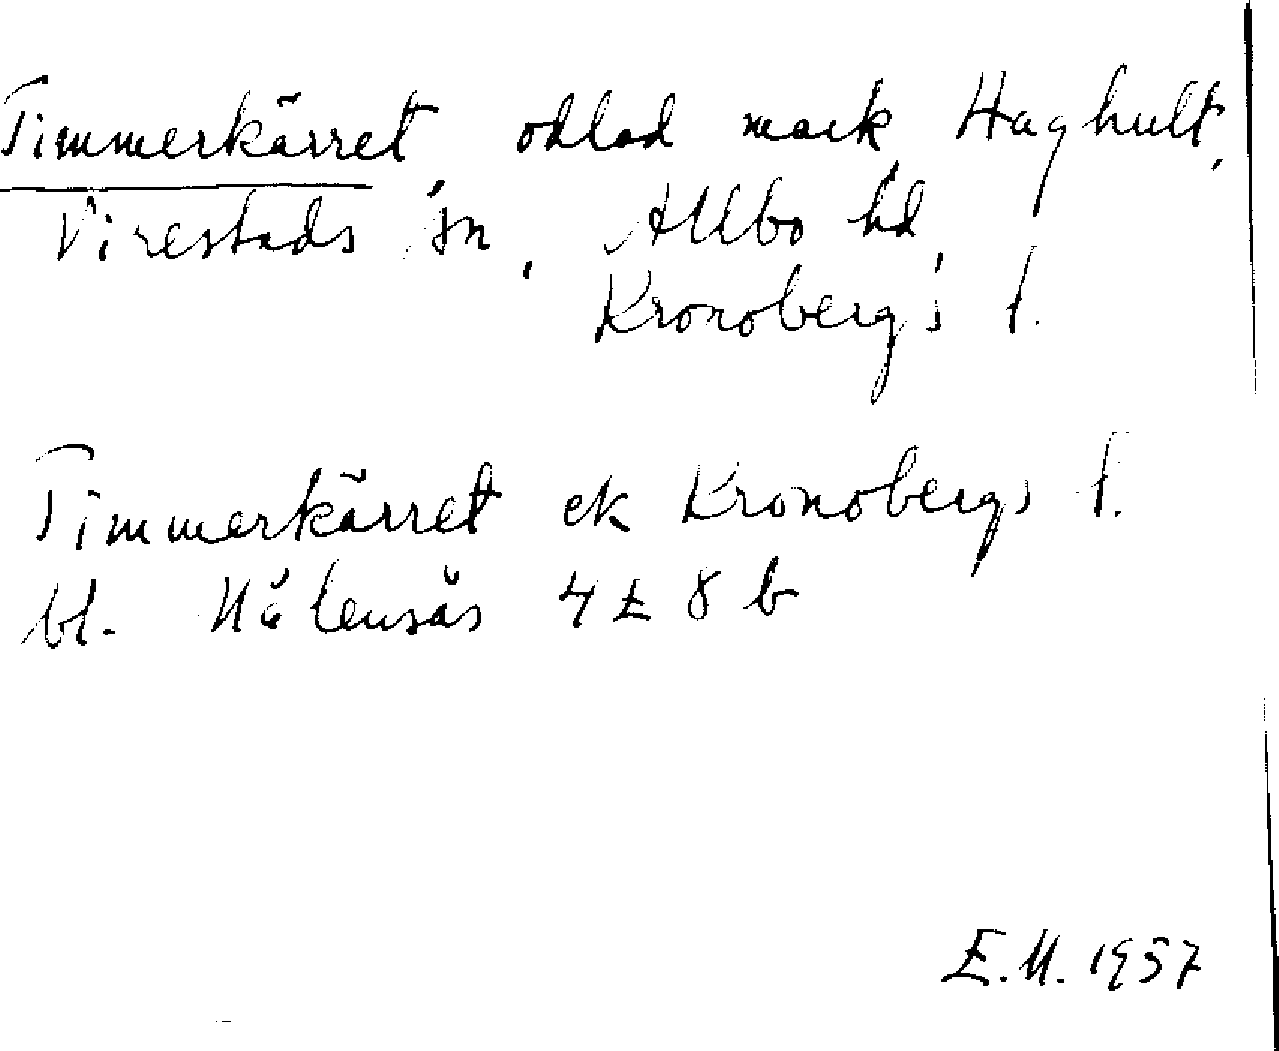 Timmerkärret, odlad mark, Haghult,
Virestads sn, Allbo hd,
Kronobergs l.
Timmerkärret ek Kronobergs l.
bl. 4 E 8 b
E.M. 1957